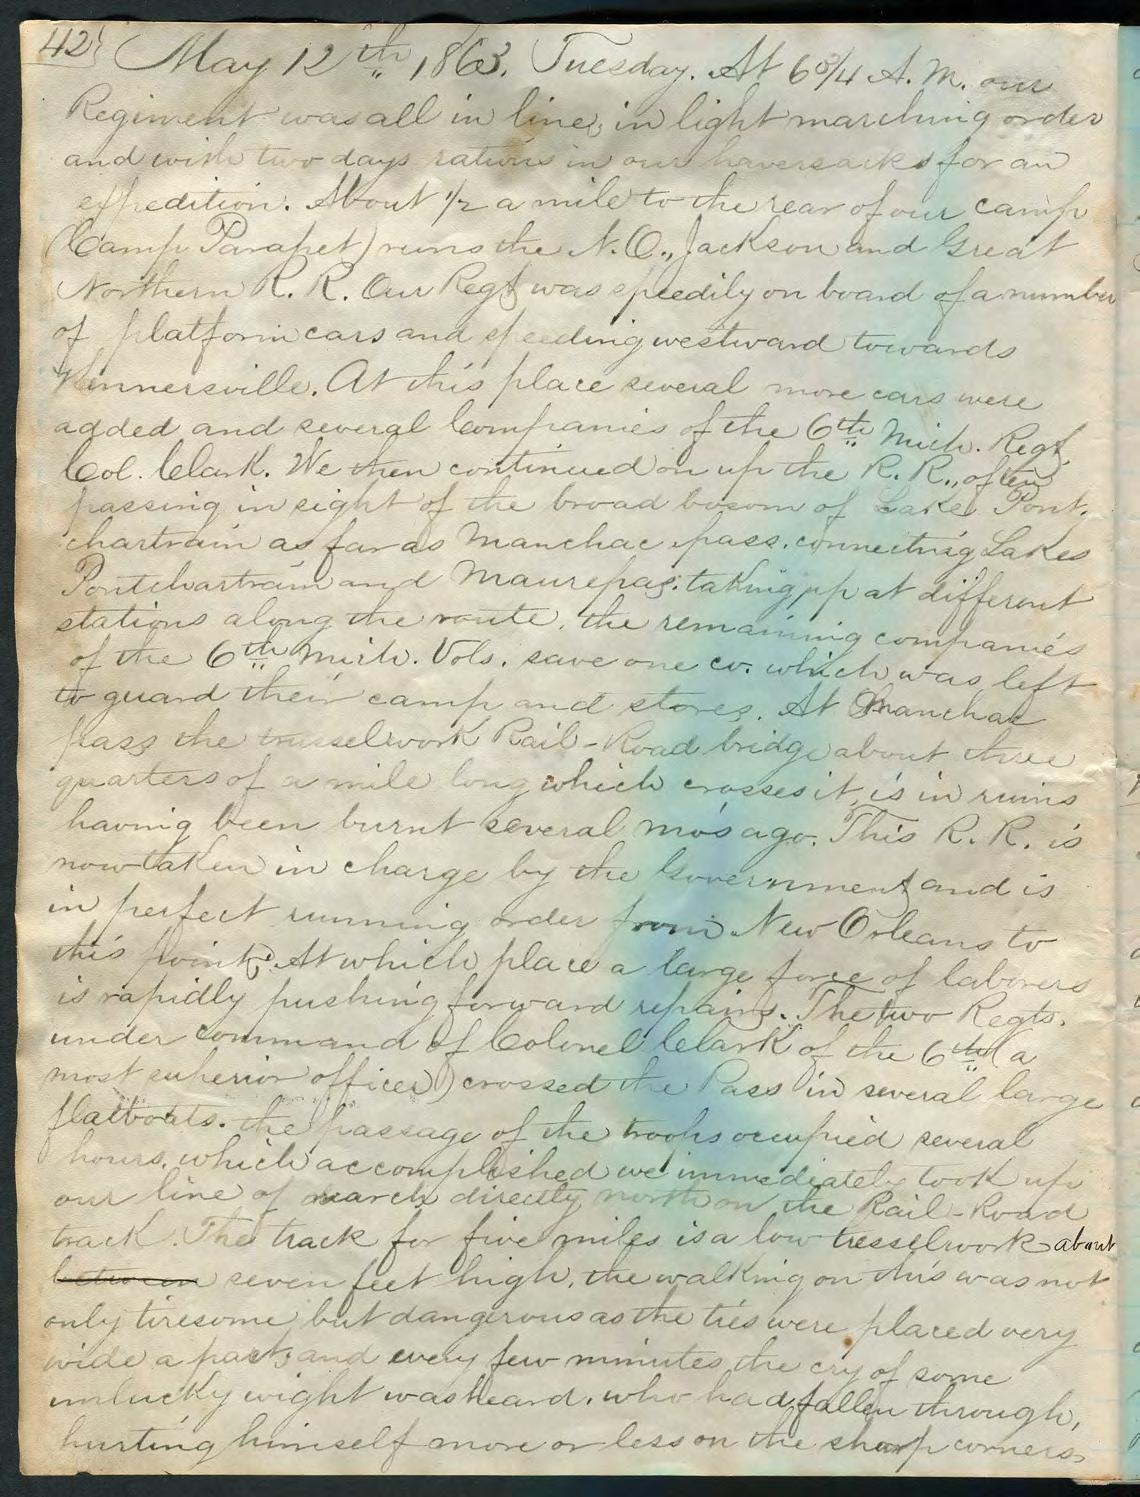 42} May 12th 1863. Tuesday. At 6 3/4 A.M. our
Regiment was all in line, in light marching order
and with two days rations in our haversacks for an
expedition. About 1/2 a mile to the rear of our camp
(Camp Parapet) runs the N.O., Jackson and Great
Northern R. R. Our Regt was speedily on board of a number
of platform cars and speeding westward towards
Kennersville. At this place several more cars were
added and several Companies of the 6th Mich. Regt,
Col. Clark. We then continued on up the R. R., often
passing in sight of the broad bosom of Lake Pont-
chartrain as far as Manchac pass. connecting Lakes
Pontchartrain and Maurepas. taking up at different
stations along the route, the remaining companies
of the 6th Mich. Vols. save one co. which was left
to guard their camp and stores. At Manchac
pass the trusselwork Rail-Road bridge about three
quarters of a mile long which crosses it, is in ruins
having been burnt several mo's ago. This R. R. is
now taken in charge by the Government and is
in perfect running order from New Orleans to
this point. At which place a large force of laborers
is rapidly pushing forward repairs. The two Regts.
under command of Colonel Clark of the 6th (a
most superior officer) crossed the Pass in several large
flatboats. the passage of the troops occupied several
hours, which accomplished we immediately took up
our line of march directly north on the Rail-Road
track. The track for five miles is a low tresselwork about
between seven feet high, the walking on this was not
only tiresome, but dangerous as the ties were placed very
wide a part, and every few minutes the cry of some
unlucky wight was heard, who had fallen through,
hurting himself more or less on the sharp corners,